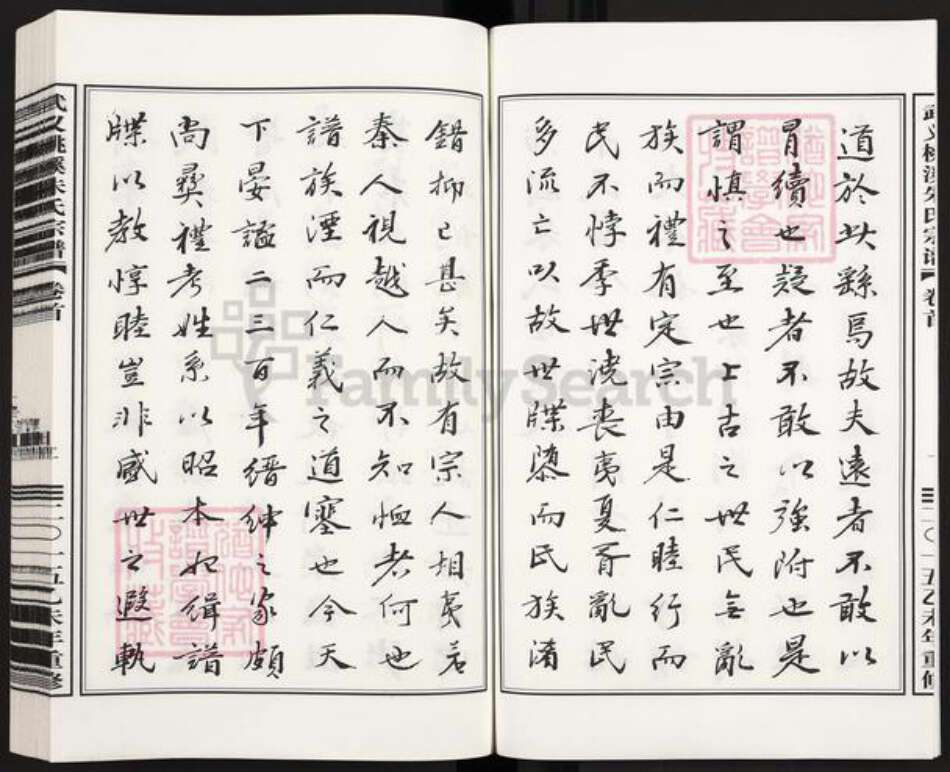 武义桃溪朱氏宗谱 卷首 二〇一五乙未年重修
道於此繇焉故夫遠者不敢以
冐續也疑者不敢以強附也是
謂慎之至也上古之世民無亂
族而禮有定宗由是仁睦行而
民不悖季世澆喪夷夏胥亂民
多流亡以故世牒隳而民族淆
錯抑已甚矣故有宗人相夷若
秦人視越人而不知恤者何也
譜族湮而仁義之道塞也今天
下晏謐二三百年縉紳之家頗
尚彞禮考姓系以昭本祀緝譜
牒以教惇睦豈非盛世之遐軌
武义桃溪朱氏宗譜 卷首 二〇一五乙未年重修
FamilySearch